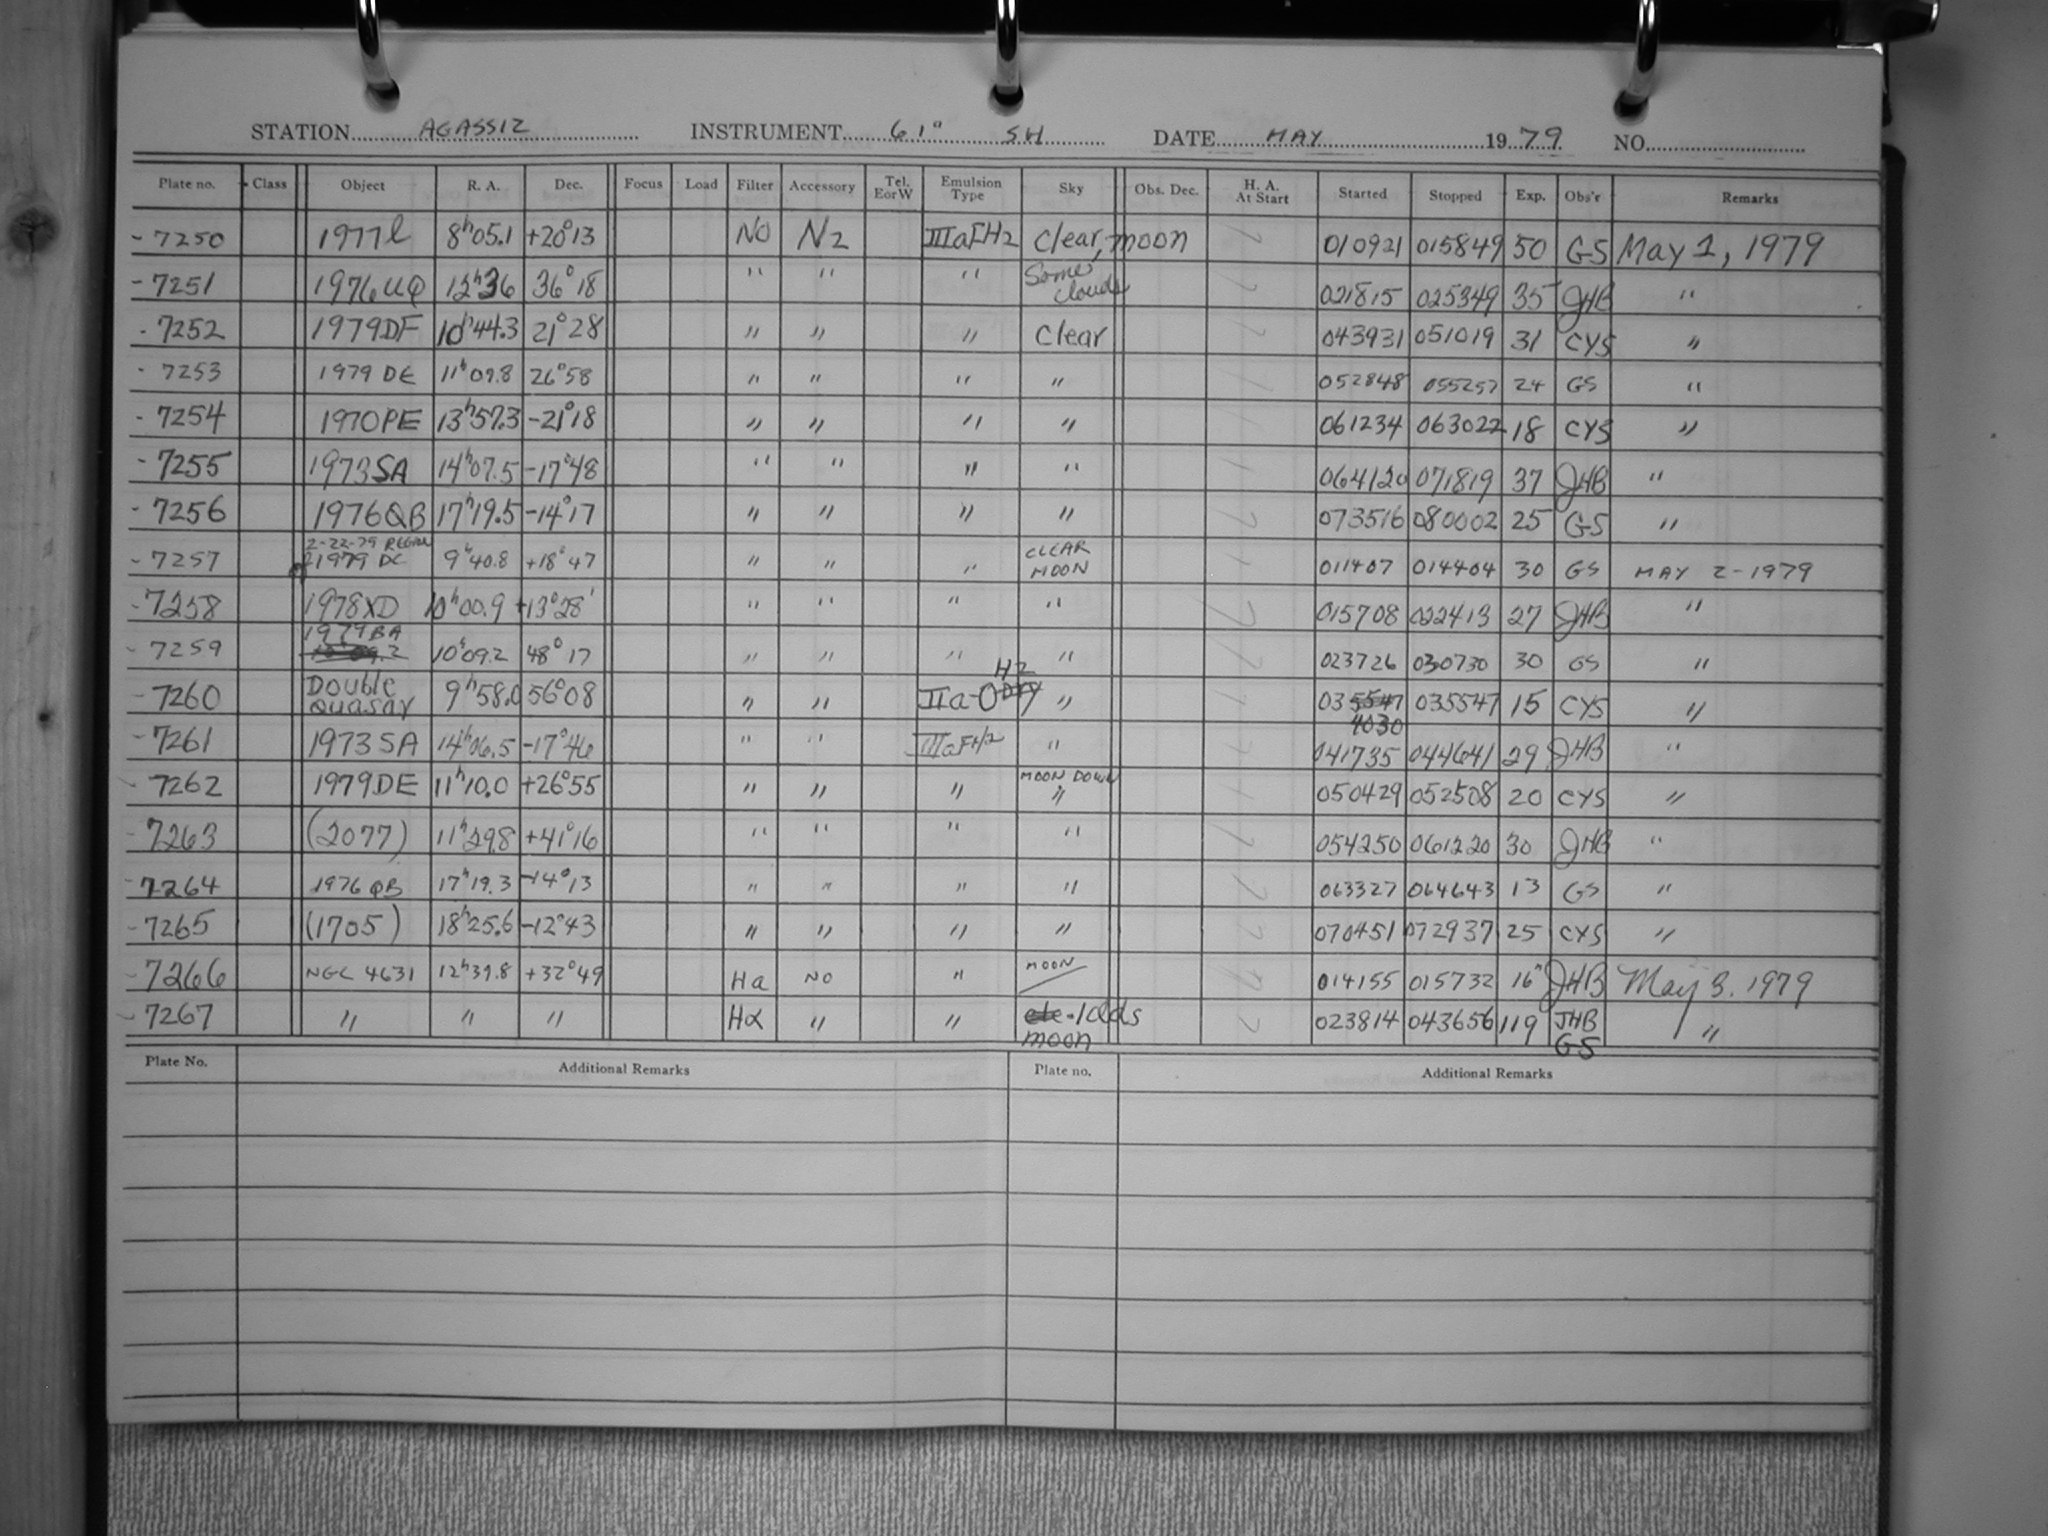 STATION AGASSIZ INSTRUMENT 61" SH DATE MAY 1979 NO.
Plate no. Class Object R. A. Dec. Focus Load Filter Accessory Tel. E or W Emulsion Type Sky Obs. Dec. H. A. At Start Started Stopped Exp. Obs'r Remarks
- 7250 1977l 8h05.1 +20°13 NO N2 IIIaFH2 Clear, moon 010921 015849 50 GS May 1, 1979
- 7251 1976UQ 12h36 36°18 " " " Some clouds 021815 025349 35 JHB "
- 7252 1979DF 10h44.3 21°28 " " " Clear 043931 051019 31 CYS "
- 7253 1979 DE 11h09.8 26°58 " " " " 052848 055257 24 GS "
- 7254 1970PE 13h57.3 -21°18 " " " " 061234 063022 18 CYS "
- 7255 1973SA 14h07.5 -17°48 " " " " 064120 071819 37 JHB "
- 7256 1976QB 17h19.5 -14°17 " " " " 073516 080002 25 GS "
- 7257 2-22-79 1979 DC 9h40.8 +18°47 " " " CLEAR MOON 011407 014404 30 GS MAY 2-1979
- 7258 1978XD 10h00.9 +13°28' " " " " 015708 022413 27 JHB "
- 7259 1979BA 10h09.2 48°17 " " " " 023726 030730 30 GS "
- 7260 Double Quasar 9h58.0 56°08 " " IIa-O H2 " 034030 035547 15 CYS "
- 7261 1973SA 14h06.5 -17°46 " " IIIaFH2 " 041735 044641 29 JHB "
- 7262 1979DE 11h10.0 +26°55 " " " MOON DOWN " 050429 052508 20 CYS "
- 7263 (2077) 11h29.8 +41°16 " " " " 054250 061220 30 JHB "
- 7264 1976 QB 17h19.3 -14°13 " " " " 063327 064643 13 GS "
- 7265 (1705) 18h25.6 -12°43 " " " " 070451 072937 25 CYS "
- 7266 NGC 4631 12h39.8 +32°49 Ha NO " MOON 014155 015732 16 JHB May 3, 1979
- 7267 " " " Hα " " clds moon 023814 043656 119 JHB GS "
Plate No. Additional Remarks Plate no. Additional Remarks